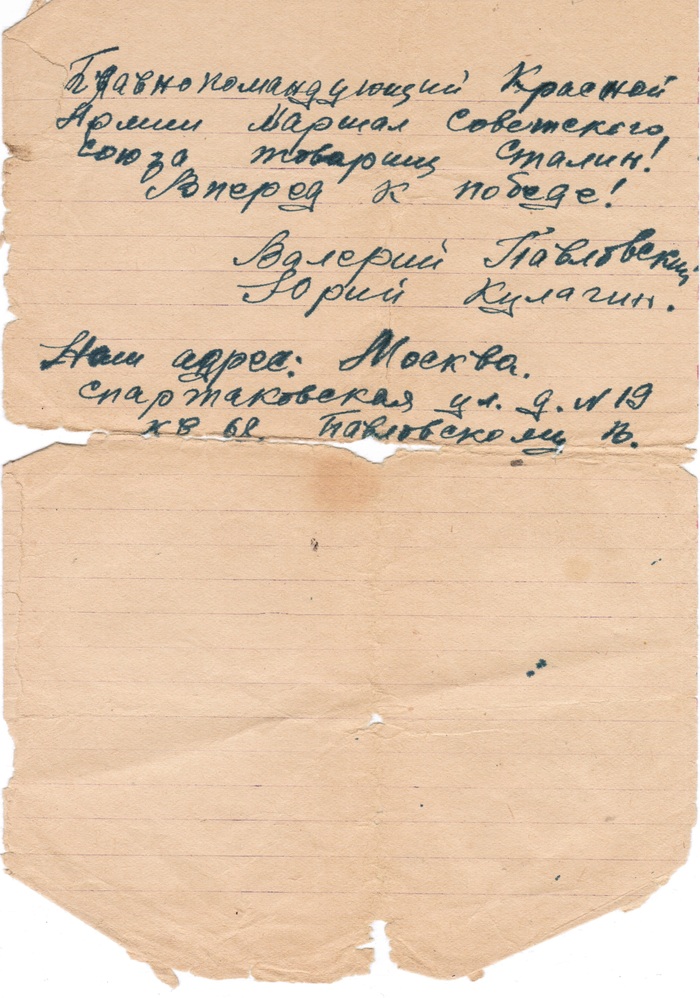 Главнокомандующий Красной
Армии Маршал Советского
союза товарищ Сталин!
Вперед к победе!
Валерий Павловский
Юрий Кулагин.
Наш адрес: Москва.
спартаковская ул. д. N 19
кв 68. Павловскому В.